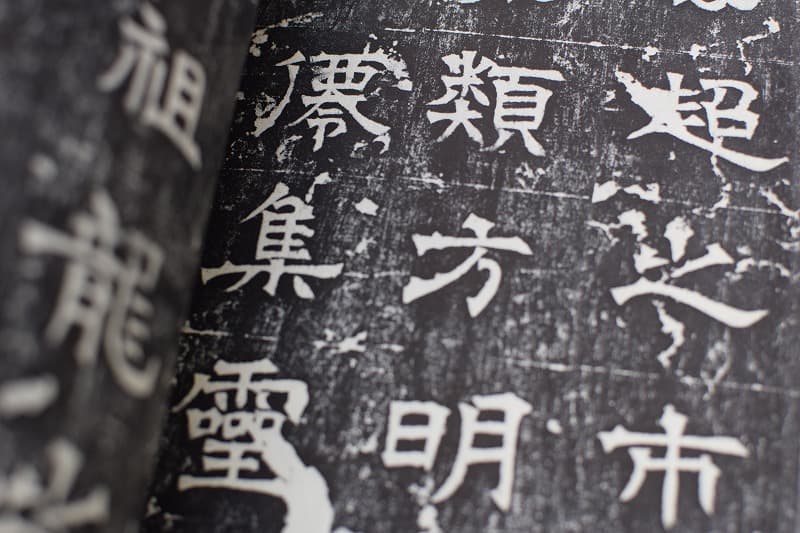 超之市
類方明
僊集靈
祖龍